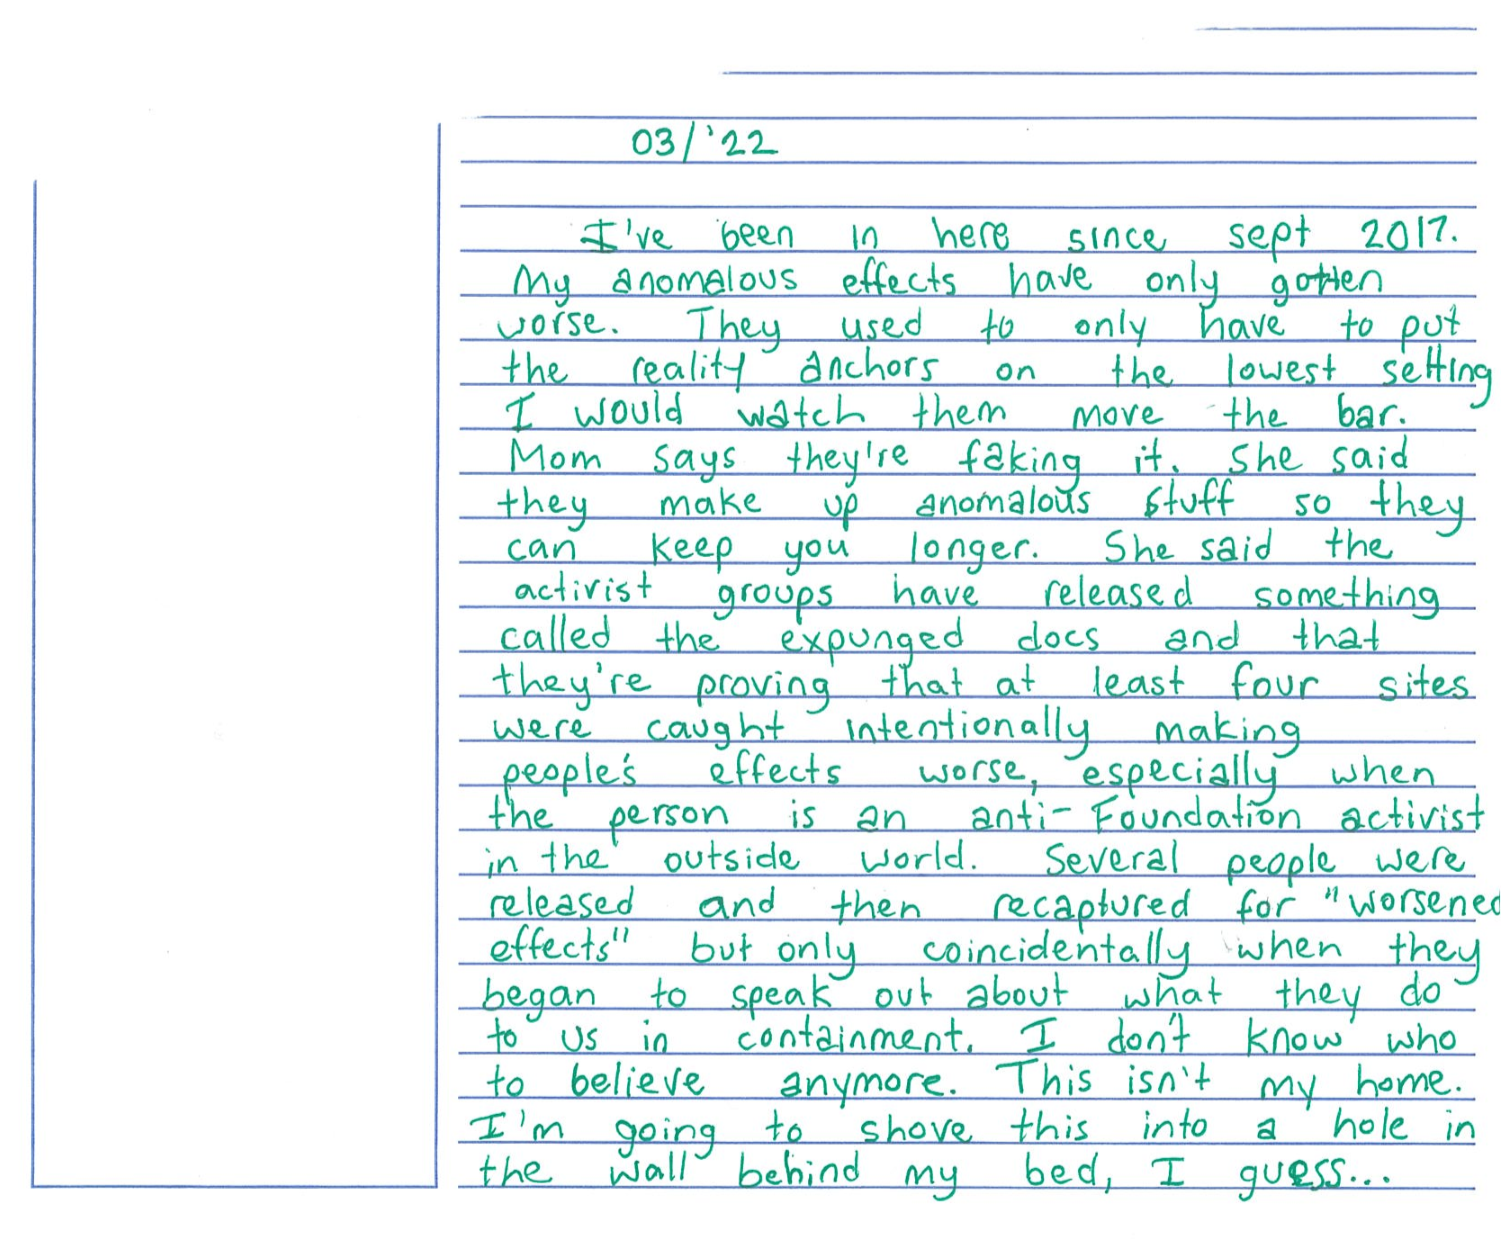 03/'22
I've been in here since sept 2017.
My anomalous effects have only gotten
worse. They used to only have to put
the reality anchors on the lowest setting
I would watch them move the bar.
Mom says they're faking it. She said
they make up anomalous stuff so they
can keep you longer. She said the
activist groups have released something
called the expunged docs and that
they're proving that at least four sites
were caught intentionally making
people's effects worse, especially when
the person is an anti-Foundation activist
in the outside world. Several people were
released and then recaptured for "worsened
effects" but only coincidentally when they
began to speak out about what they do
to us in containment. I don't know who
to believe anymore. This isn't my home.
I'm going to shove this into a hole in
the wall behind my bed, I guess...